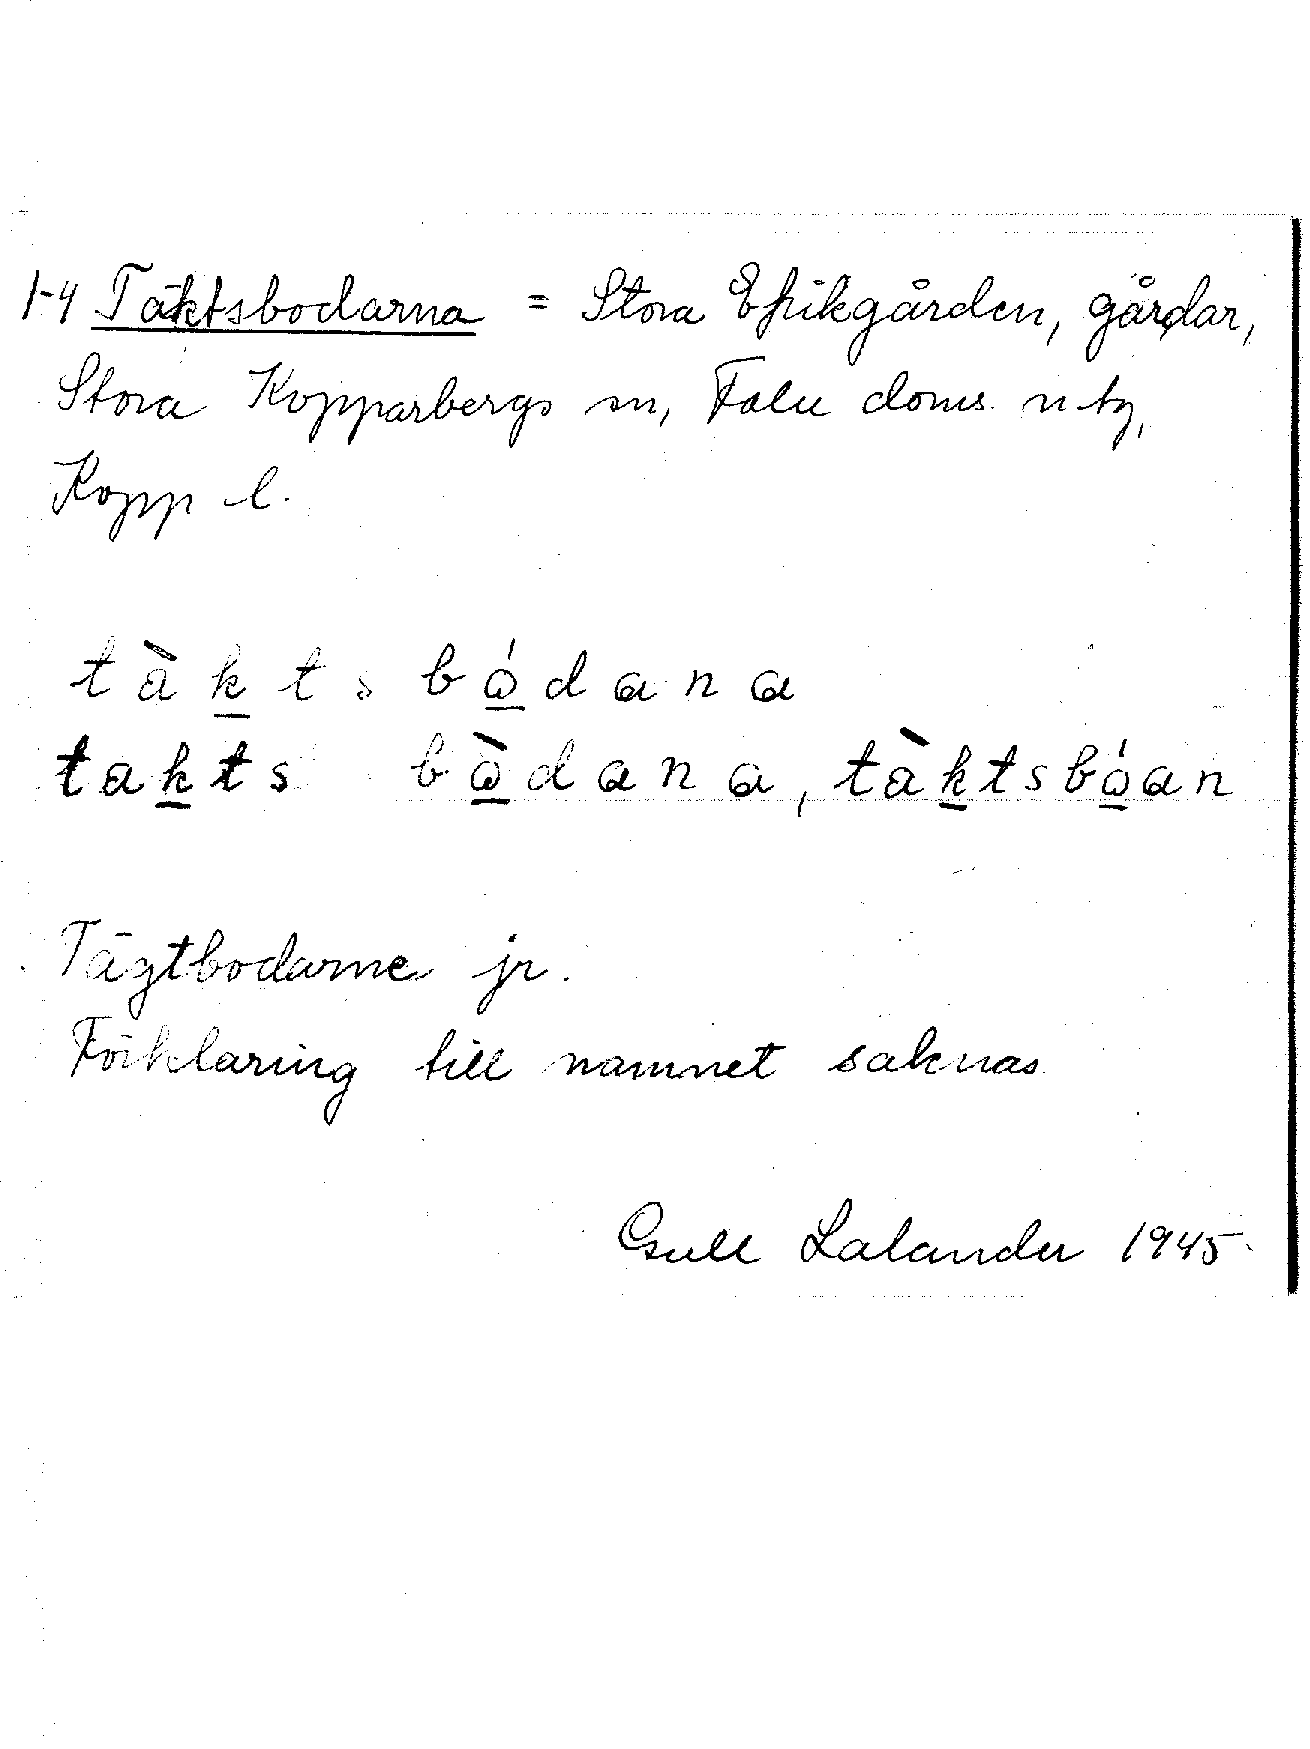 1-4 Täktsbodarna = Stora Ehikgården, gårdar,
Stora Kopparbergs sn, Falu doms. n tg,
Kopp l.
tàkts bódana
takts bòdana, tàktsbóan
Tägtbodarne jr.
Förklaring till namnet saknas
Gull Lalander 1945